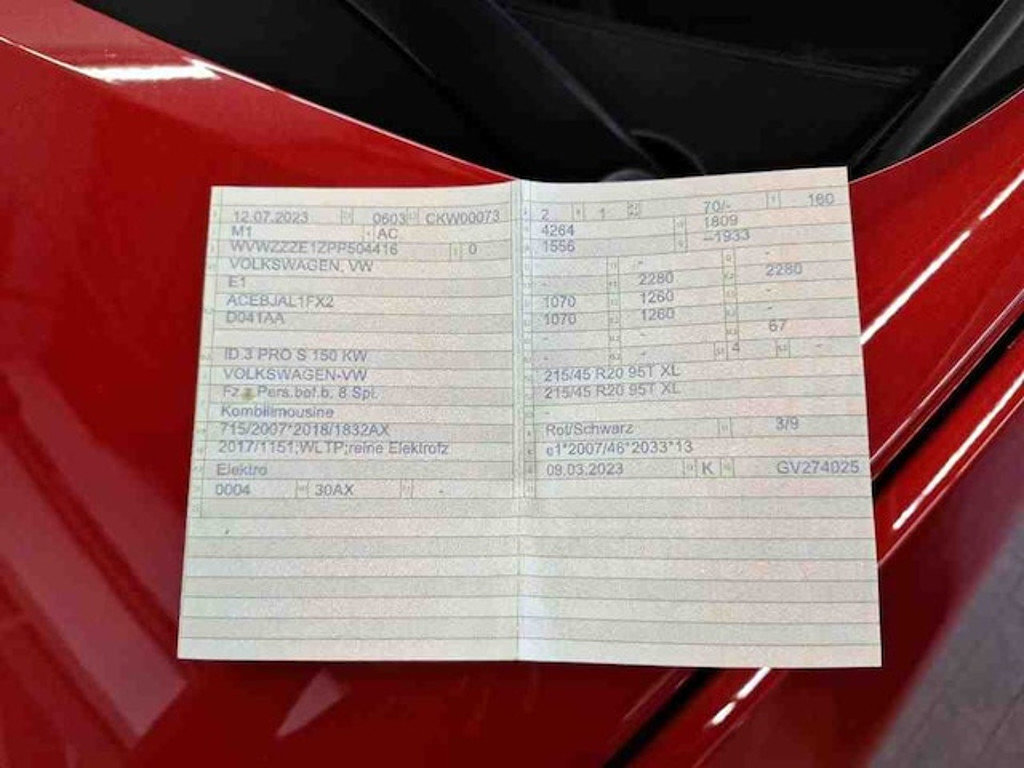 12.07.2023 0603 CKW00073
M1 AC
WVWZZZE1ZPP504416 0
VOLKSWAGEN, VW
E1
ACEBJAL1FX2
D041AA
ID.3 PRO S 150 KW
VOLKSWAGEN-VW
Fz.z.Pers.bef.b. 8 Spl.
Kombilimousine
715/2007*2018/1832AX
2017/1151;WLTP;reine Elektrofz
Elektro
0004 30AX -
2 1 70/- 160
4264 1809
1556 –1933
- -
- 2280 2280
1070 1260 -
1070 1260 -
- - 67
- - 4 -
215/45 R20 95T XL
215/45 R20 95T XL
-
Rot/Schwarz 3/9
e1*2007/46*2033*13
09.03.2023 K GV274025
-